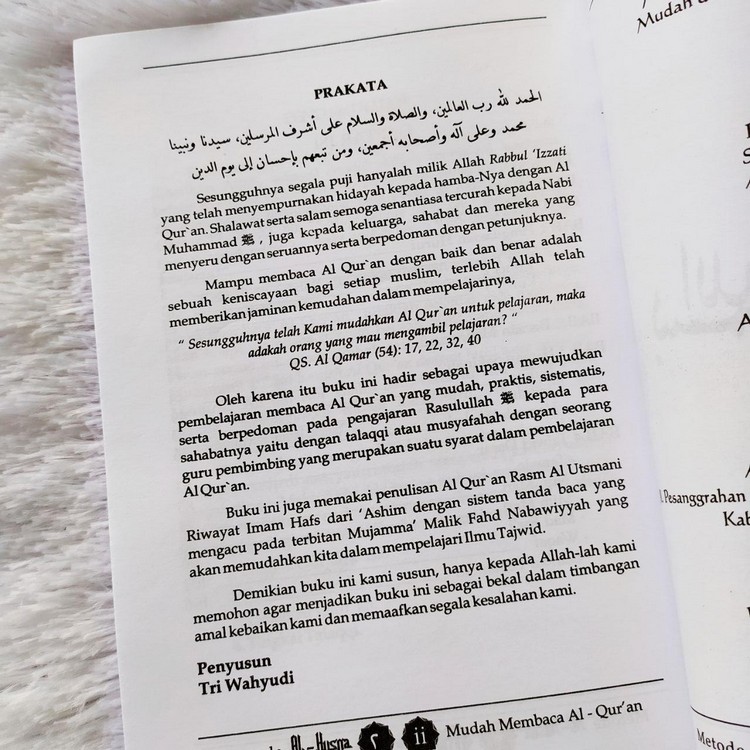 PRAKATA
الحمد لله رب العالمين، والصلاة والسلام على أشرف المرسلين، سيدنا ونبينا
محمد وعلى آله وأصحابه أجمعين، ومن تبعهم بإحسان إلى يوم الدين
Sesungguhnya segala puji hanyalah milik Allah Rabbul ‘Izzati
yang telah menyempurnakan hidayah kepada hamba-Nya dengan Al
Qur`an. Shalawat serta salam semoga senantiasa tercurah kepada Nabi
Muhammad ﷺ , juga kepada keluarga, sahabat dan mereka yang
menyeru dengan seruannya serta berpedoman dengan petunjuknya.
Mampu membaca Al Qur`an dengan baik dan benar adalah
sebuah keniscayaan bagi setiap muslim, terlebih Allah telah
memberikan jaminan kemudahan dalam mempelajarinya,
“ Sesungguhnya telah Kami mudahkan Al Qur`an untuk pelajaran, maka
adakah orang yang mau mengambil pelajaran? “
QS. Al Qamar (54): 17, 22, 32, 40
Oleh karena itu buku ini hadir sebagai upaya mewujudkan
pembelajaran membaca Al Qur`an yang mudah, praktis, sistematis,
serta berpedoman pada pengajaran Rasulullah ﷺ kepada para
sahabatnya yaitu dengan talaqqi atau musyafahah dengan seorang
guru pembimbing yang merupakan suatu syarat dalam pembelajaran
Al Qur`an.
Buku ini juga memakai penulisan Al Qur`an Rasm Al Utsmani
Riwayat Imam Hafs dari ‘Ashim dengan sistem tanda baca yang
mengacu pada terbitan Mujamma’ Malik Fahd Nabawiyyah yang
akan memudahkan kita dalam mempelajari Ilmu Tajwid.
Demikian buku ini kami susun, hanya kepada Allah-lah kami
memohon agar menjadikan buku ini sebagai bekal dalam timbangan
amal kebaikan kami dan memaafkan segala kesalahan kami.
Penyusun
Tri Wahyudi
Al-Husna ٢ ii Mudah Membaca Al - Qur’an
Mudah
Pesanggrahan
Kab
Metode